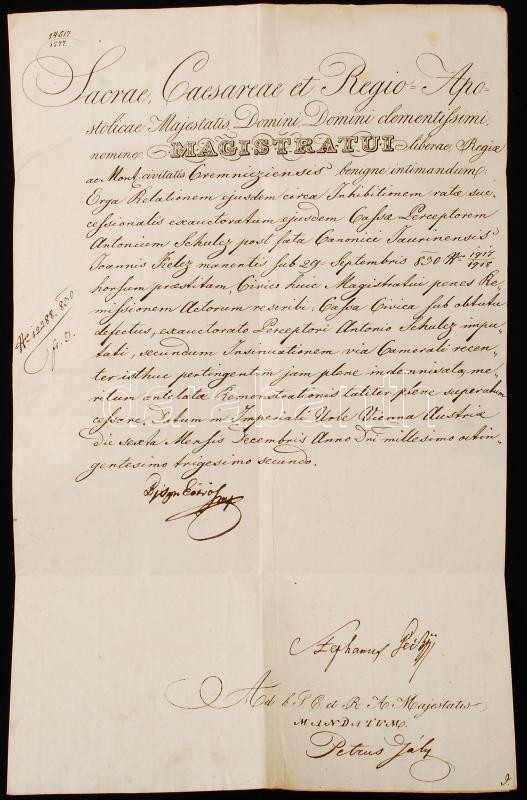 14517
1377.
Sacrae, Caesareae et Regio=Apo=
stolicae Majestatis, Domini, Domini clementissimi,
nomine, MAGISTRATUI liberae, Regiae
ac Mont. civitatis Cremnicziensis benigne intimandum:
Erga Relationem ejusdem circa Inhibitionem ratae suc-
cessionalis exauctoratum ejusdem Cassae Perceptorem
Antonium Schulcz post fata Canonici Jaurinensis
Joannis manentis sub 29 Septembris 830 No 1917/1918
horsum praestitam, Civico huic Magistratui penes Re-
missionem Actorum rescribi: Cassa Civica sub obtutu
defectus, exauctorato Perceptori Antonio Schulcz impu-
tati, secundum Insinuationem via Camerali recen-
ter isthuc pertingentem jam plene indemnisata, me-
ritum antelatae Remonstrationis taliter plene superatum
cessare. Datum in Imperiali Urbe Vienna Austriae
die sexta Mensis Decembris Anno Dni millesimo octin-
gentesimo trigesimo secundo.
No 12088/830
darabanth
Stephanus
Ad b. S. C. et R. A. Majestatis
MANDATUM.
Petrus Jály